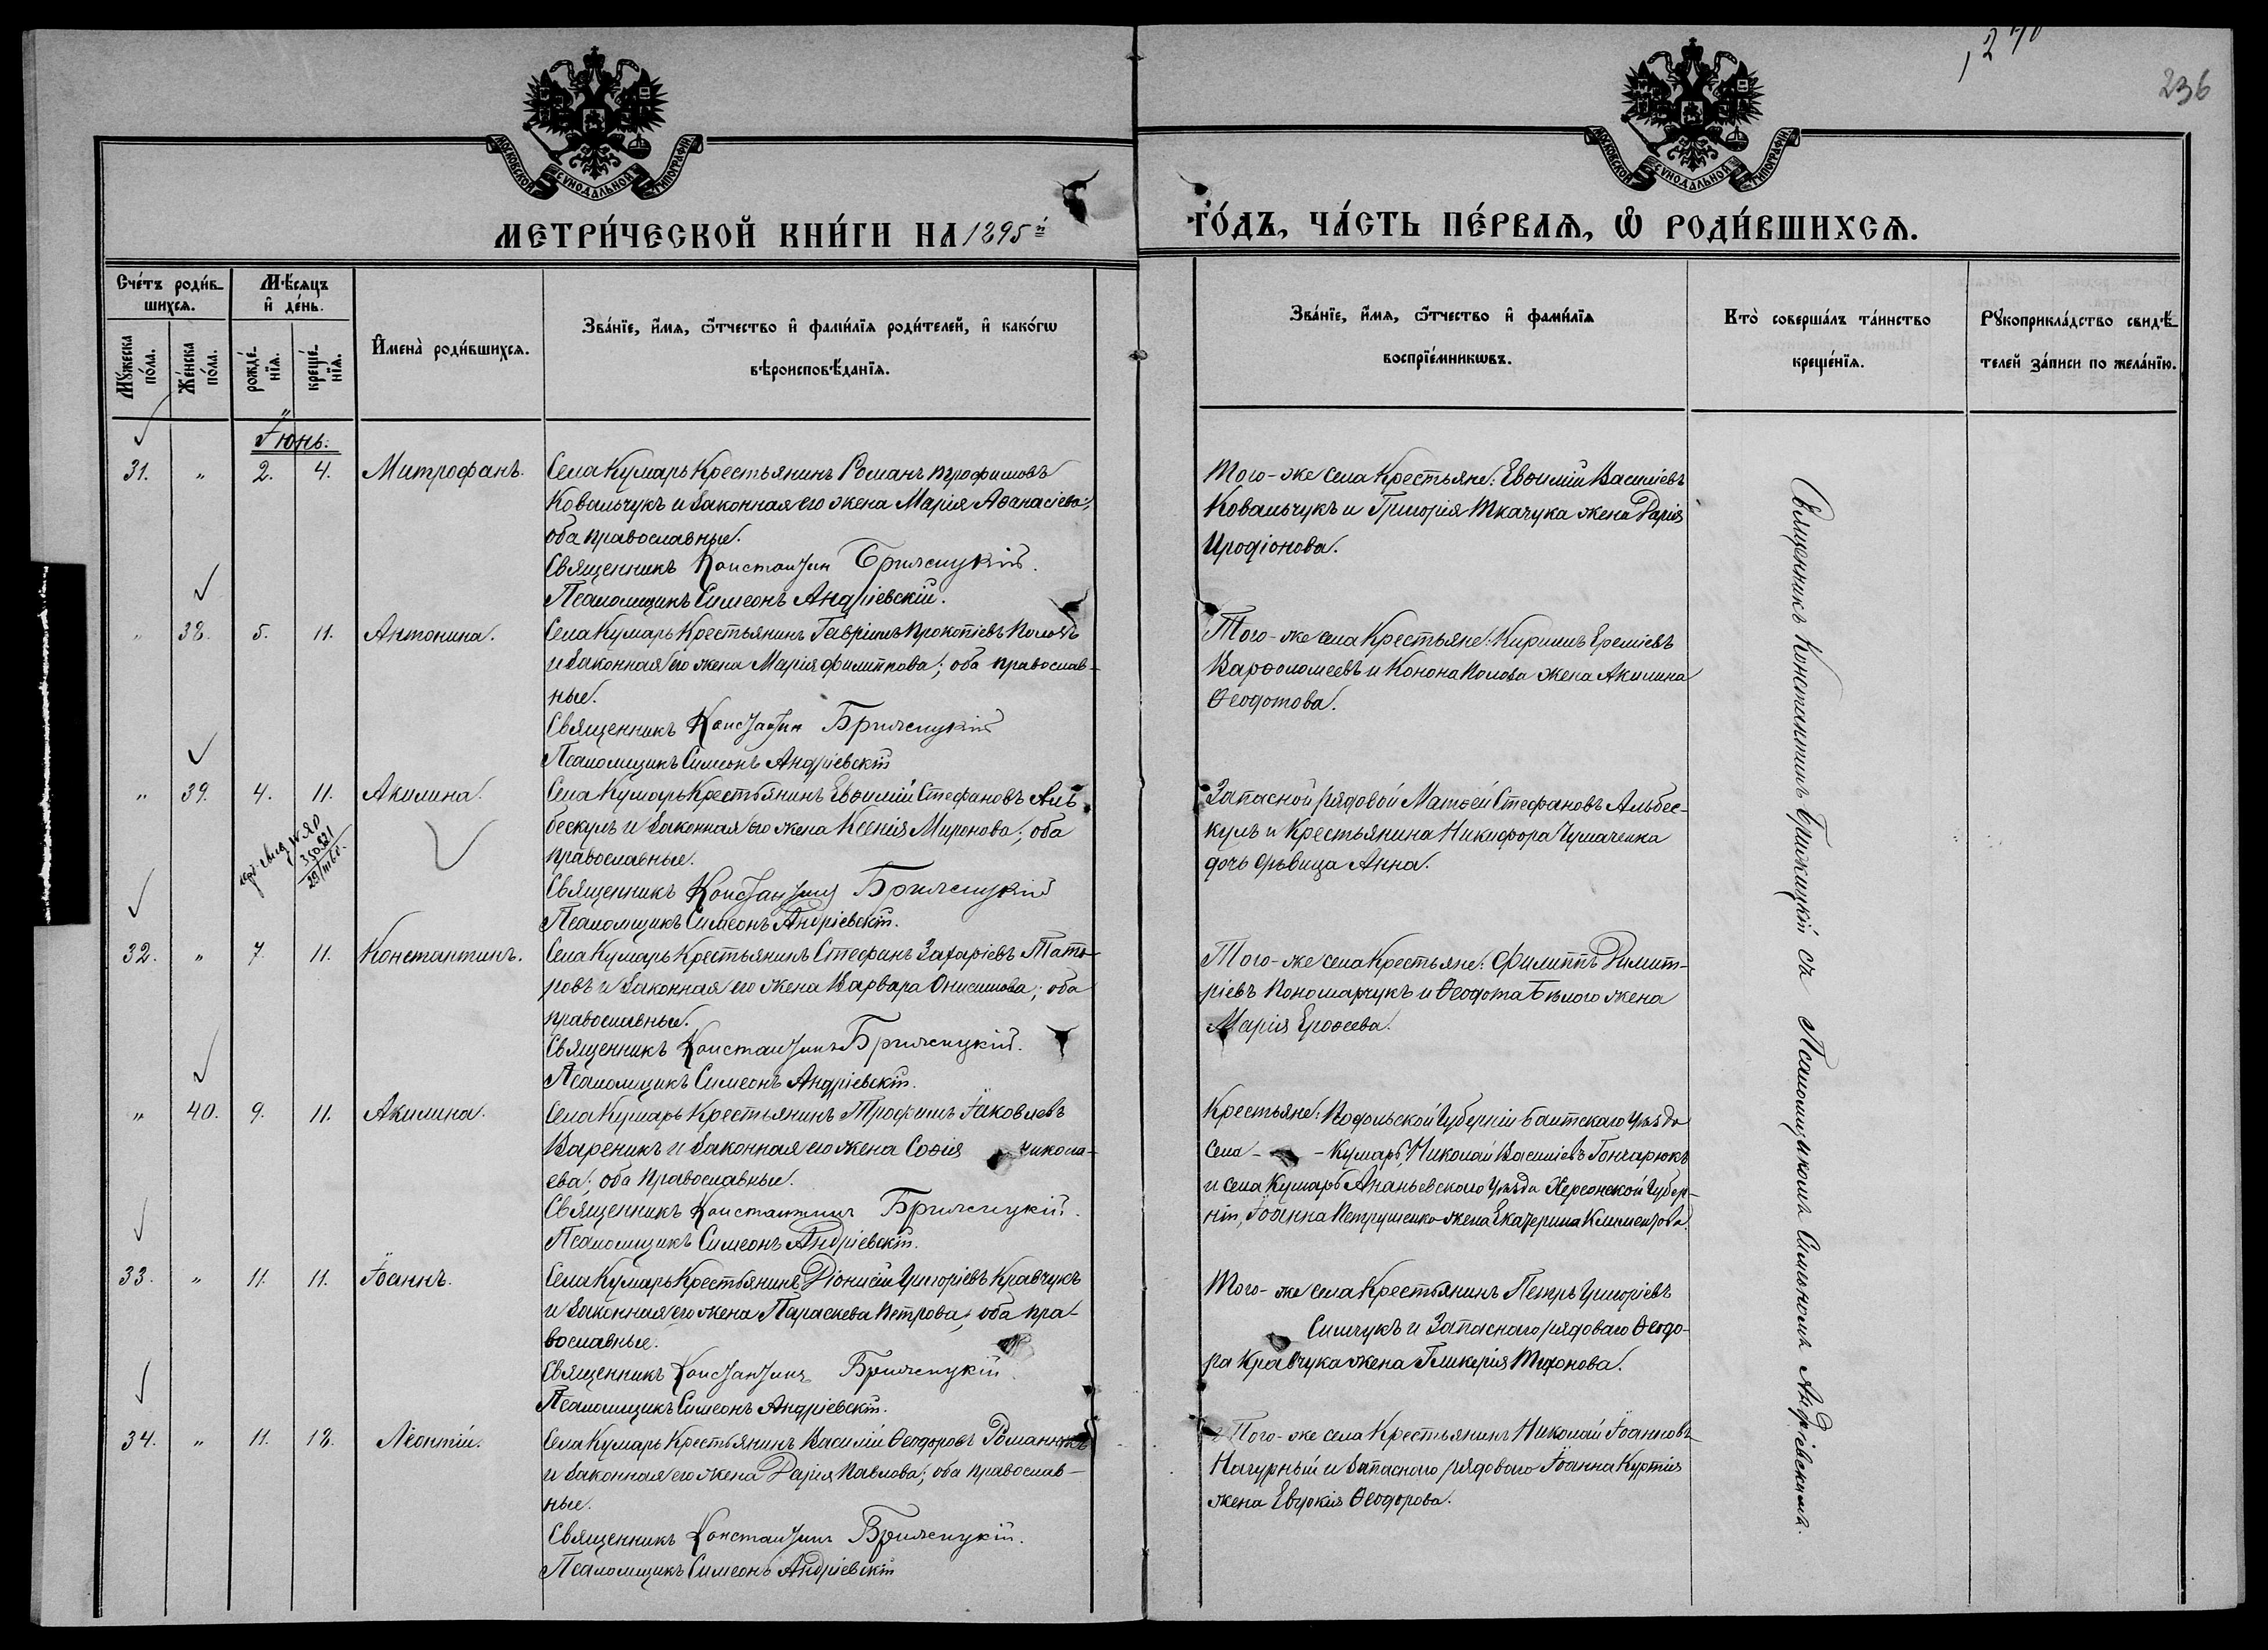 236
МОСКОВСКОЙ СѴНОДАЛЬНОЙ ТИПОГРАФІИ
МОСКОВСКОЙ СѴНОДАЛЬНОЙ ТИПОГРАФІИ
МЕТРИ́ЧЕСКОЙ КНИ́ГИ НА 1895й
ГО́ДЪ, ЧА́СТЬ ПЕ́РВАѦ, Ѡ҆ РОДИ́ВШИХСѦ.
Сче́тъ роди́в-
шихсѧ.
Мѣ́сяцъ
и҆ де́нь.
Мꙋ́жеска по́ла.
Же́нска по́ла.
рожде́-нїѧ.
креще́-нїѧ.
И҆мена̀ роди́вшихсѧ.
Зва́нїе, и҆́мѧ, ѻ҆́тчество и҆ фами́лїѧ роди́телей, и҆ како́гѡ
вѣроисповѣ́данїѧ.
Зва́нїе, и҆́мѧ, ѻ҆́тчество и҆ фами́лїѧ
воспрїе́мникѡвъ.
Кто̀ соверша́лъ та́инство
креще́нїѧ.
Рꙋкоприкла́дство свидѣ́-
телей за́писи по жела́нїю.
Іюнь.
31. " 2. 4. Митрофанъ. Села Кумарь Крестьянинъ Романъ Трофимовъ
Ковальчукъ и законная его жена Марія Аѳанасіева;
оба православные.
Священникъ Константин Брижицкій.
Псаломщикъ Симеонъ Андріевскій.
Того-же села Крестьяне: Евѳимій Василіевъ
Ковальчукъ и Григорія Ткачука жена Дарія
Иродіонова.
" 38. 5. 11. Антонина. Села Кумарь Крестьянинъ Гавріилъ Прокопіевъ Поповъ
и законная его жена Марія Филиппова; оба православ-
ные.
Священникъ Константин Брижицкій
Псаломщикъ Симеонъ Андріевскій
Того-же села Крестьяне: Кириллъ Ереміевъ
Варѳоломеевъ и Конона Попова жена Акилина
Ѳеодотова.
" 39. 4. 11. Акилина. Села Кумарь Крестьянинъ Евѳимій Стефановъ Аль-
бескулъ и законная его жена Ксенія Миронова; оба
православные.
Священникъ Константинъ Брижицкій
Псаломщикъ Симеонъ Андріевскій.
Запасной рядовой Матѳей Стефановъ Альбес-
кулъ и Крестьянина Никифора Чумаченка
дочь дѣвица Анна.
32. " 7. 11. Константинъ. Села Кумарь Крестьянинъ Стефанъ Захаріевъ Тата-
ровъ и законная его жена Варвара Онисимова; оба
православные.
Священникъ Константинъ Брижицкій.
Псаломщикъ Симеонъ Андріевскій.
Того-же села Крестьяне: Филиппъ Димит-
ріевъ Пономарчукъ и Ѳеодота Бѣлого жена
Марія Ероѳеева.
" 40. 9. 11. Акилина. Села Кумарь Крестьянинъ Трофимъ Іаковлевъ
Вареникъ и законная его жена Софія Никола-
ева; оба Православные.
Священникъ Константинъ Брижицкій.
Псаломщикъ Симеонъ Андріевскій.
Крестьяне: Подольской Губерніи Балтскаго Уѣзда
села - - Кумарь, Николай Василіевъ Гончарюкъ
и села Кумарь Ананьевского Уѣзда Херсонской Губер-
ніи, Іоанна Петрушенко жена Екатерина Климентова.
33. " 11. 11. Іоаннъ. Села Кумарь Крестьянинъ Діонисій Григоріевъ Кравчукъ
и законная его жена Параскева Петрова; оба пра-
вославные.
Священникъ Константинъ Брижицкій
Псаломщикъ Симеонъ Андріевскій.
Того-же села Крестьянинъ Петръ Григоріевъ
Симчукъ и Запаснаго рядоваго Ѳеодо-
ра Кравчука жена Гликерія Тихонова.
34. " 11. 18. Леонтій. Села Кумарь Крестьянинъ Василій Ѳеодоровъ Романюкъ
и законная его жена Дарія Павлова; оба православ-
ные.
Священникъ Константинъ Брижицкій.
Псаломщикъ Симеонъ Андріевскій
Того-же села Крестьянинъ Николай Іоанновъ
Нагурный и Запасного рядоваго Іоанна Куртія
жена Евдокія Ѳеодорова.
Священникъ Константинъ Брижицкій съ Псаломщикомъ Симеономъ Андріевскимъ.